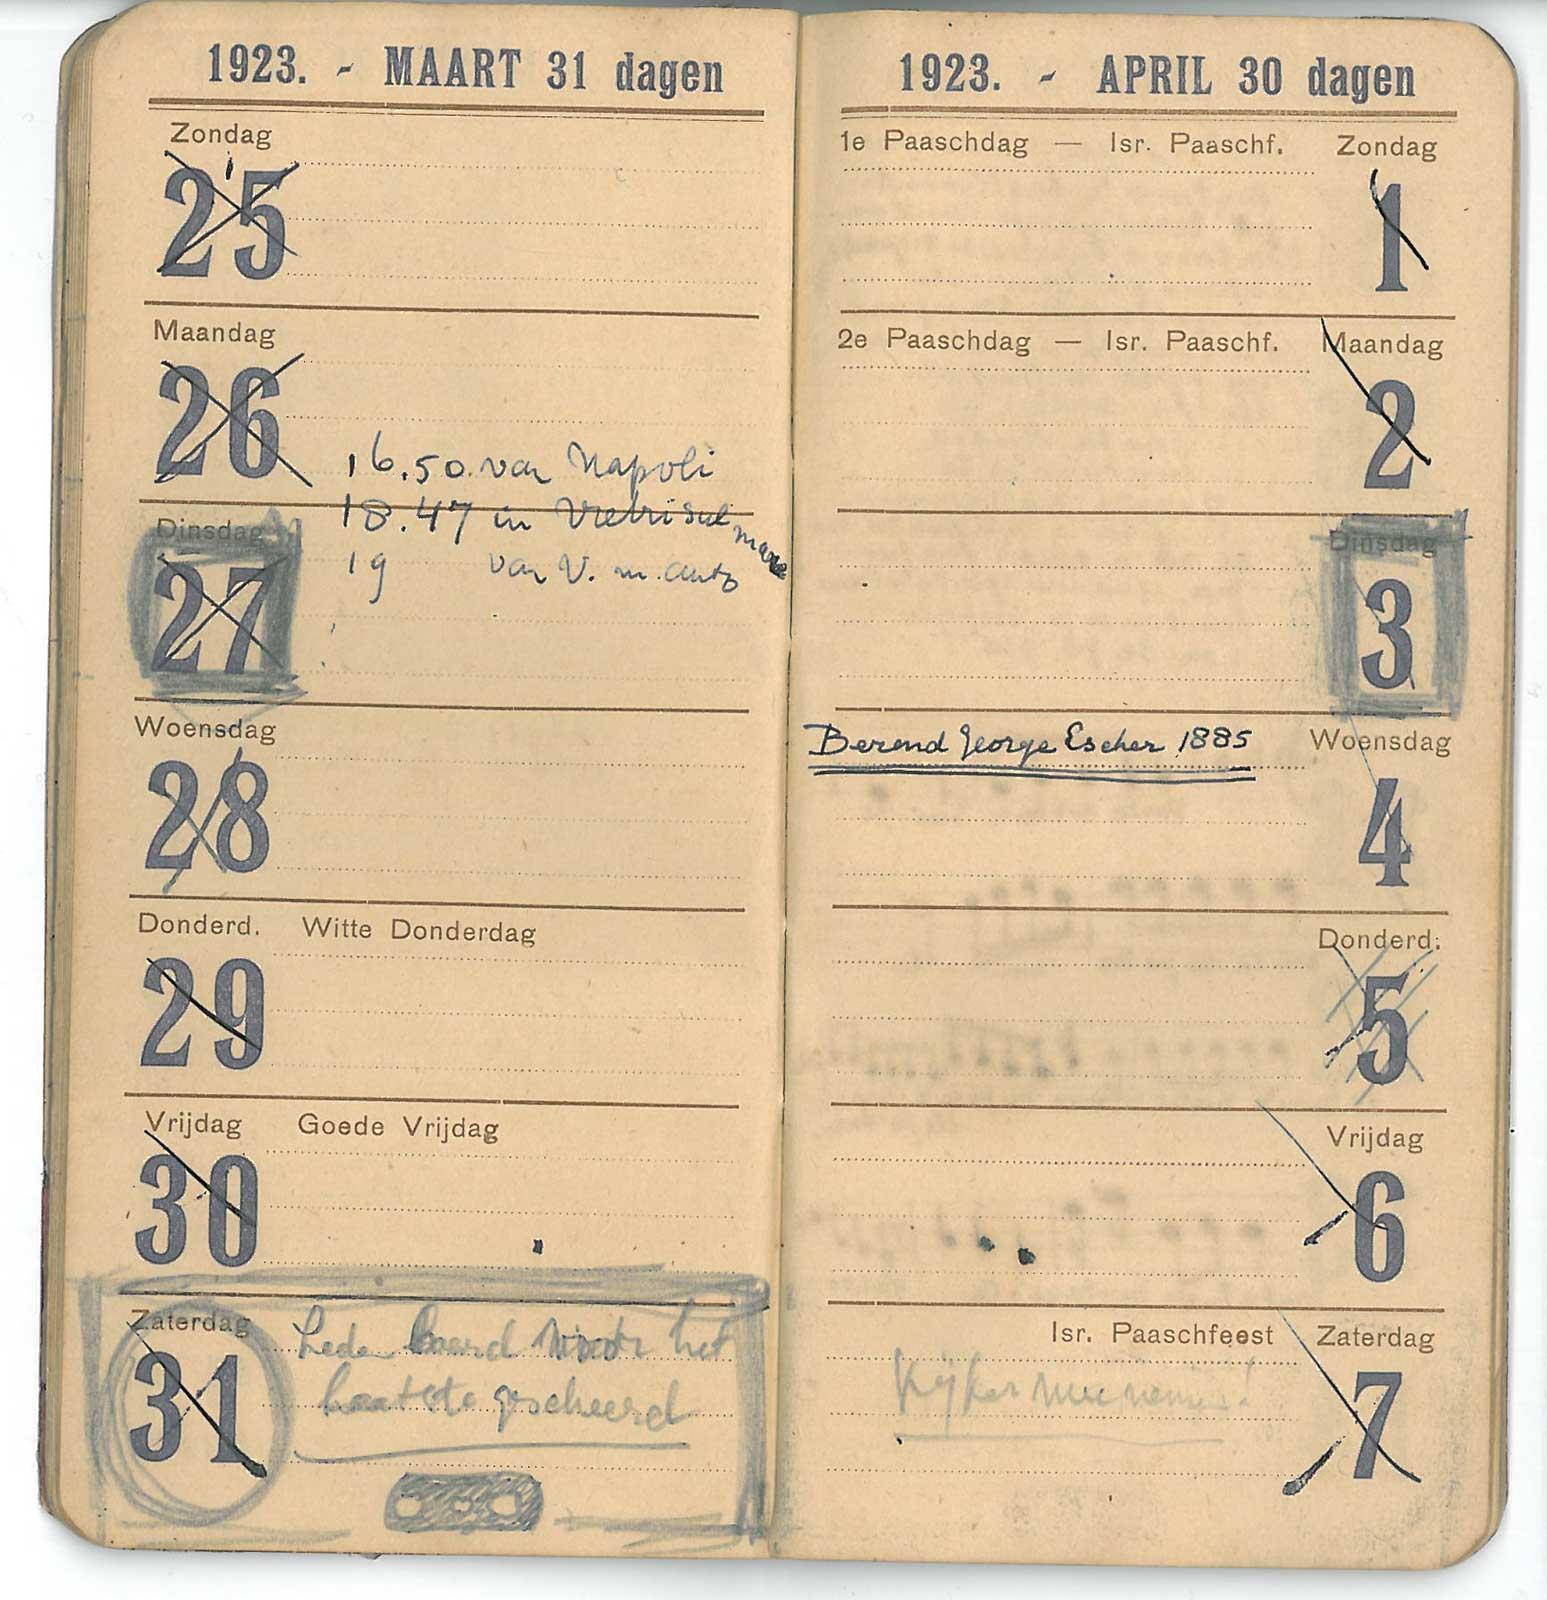 1923. - MAART 31 dagen
Zondag
25
Maandag
26
16.50 van Napoli
18.47 in Vietri sul mare
Dinsdag
19 van V. m. auto
27
Woensdag
28
Donderd. Witte Donderdag
29
Vrijdag Goede Vrijdag
30
Zaterdag
31
baard voor het
laatste gescheerd
1923. - APRIL 30 dagen
1e Paaschdag — Isr. Paaschf. Zondag
1
2e Paaschdag — Isr. Paaschf. Maandag
2
Dinsdag
3
Berend George Escher 1885 Woensdag
4
Donderd.
5
Vrijdag
6
Isr. Paaschfeest Zaterdag
Kijker meenemen!
7